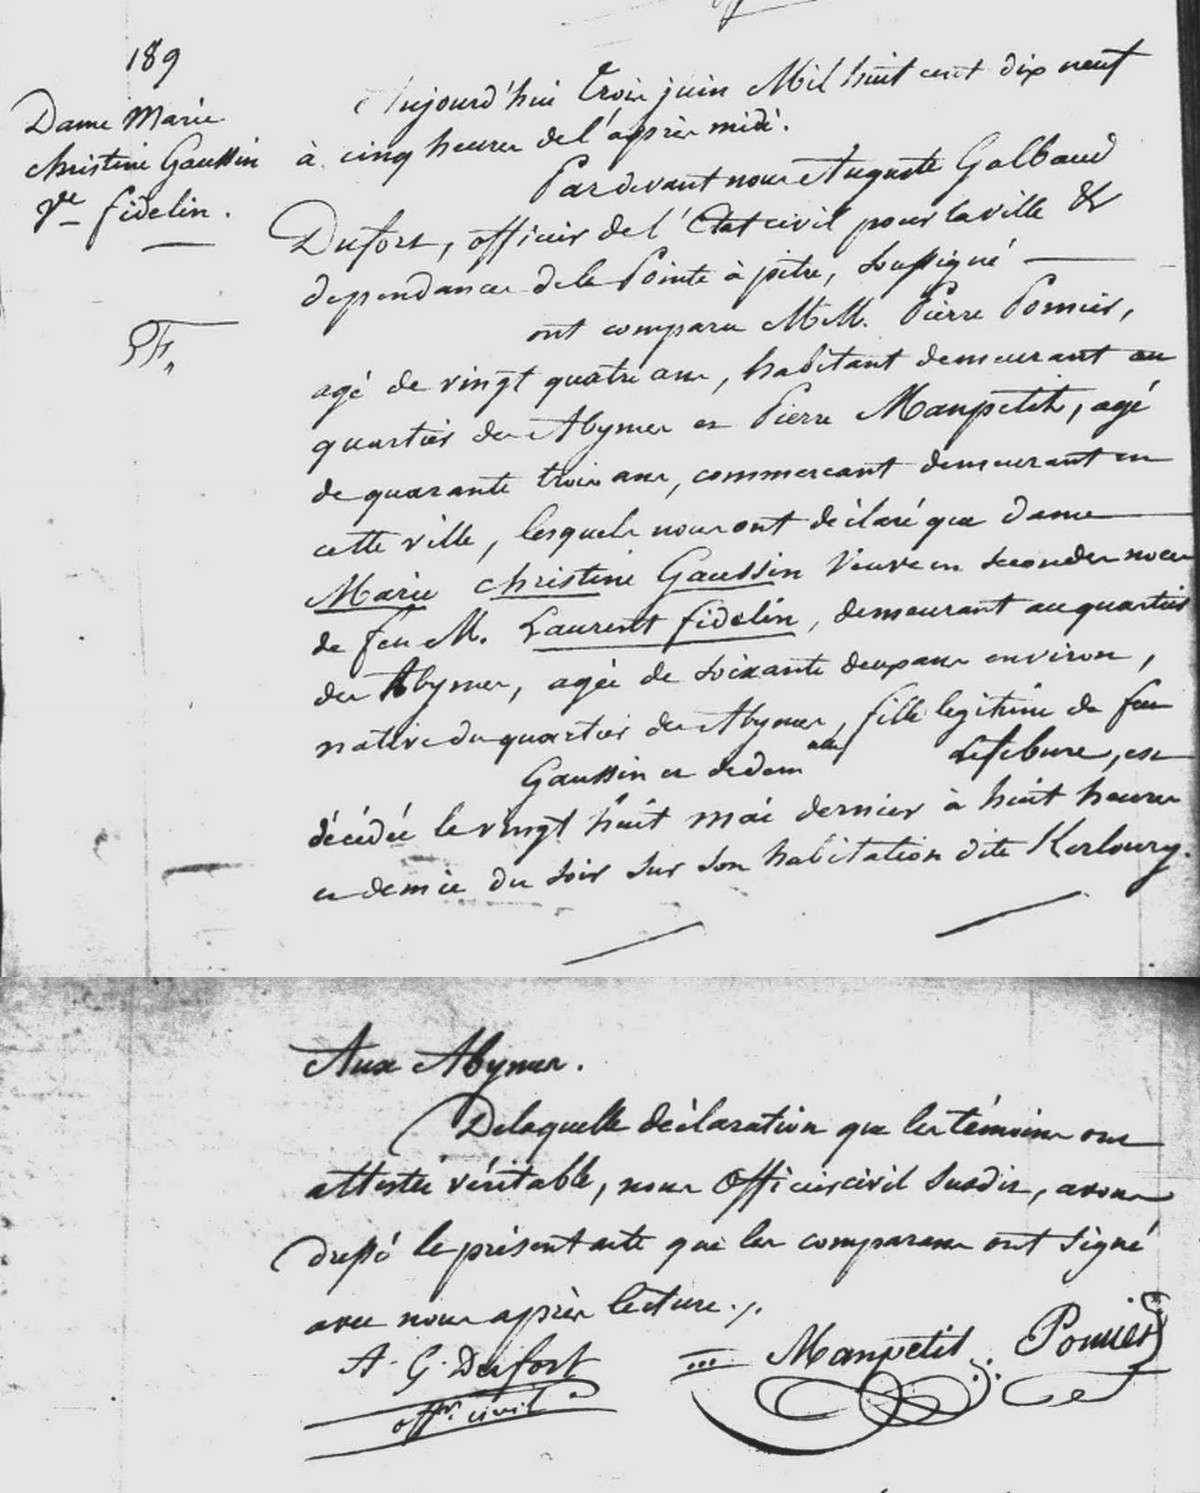 189
Dame Marie
christine Gaussin
Ve fidelin.
Aujourd'hui trois juin Mil huit cent dix neuf
à cinq heures de l'après midi.
Pardevant nous Auguste Galbaud
Dufort, officier de l'Etat civil pour la ville &
dependances de la Pointe à pitre, soussigné
ont comparu MM. Pierre Pomiés,
agé de vingt quatre ans, habitant demeurant au
quartier des Abymes et Pierre Manpetit, agé
de quarante trois ans, commercant demeurant en
cette ville, lesquels nous ont déclaré que dame
Marie christine Gaussin Veuve en secondes noces
de feu M. Laurent fidelin, demeurant au quartier
des Abymes, agée de soixante deux ans environ,
native du quartier des Abymes, fille legitime de feu
Gaussin et de dem.elle Lefebure, est
décédée le vingt huit mai dernier à huit heures
et demie du soir sur son habitation dite Kerloury.
Aux Abymes.
De laquelle déclaration que les témoins ont
attestée véritable, nous Officier civil susdit, avons
dressé le présent acte que les comparans ont signé
avec nous après lecture ./.
A. G. Dufort
offer. civil
Manpetit
Pomiés